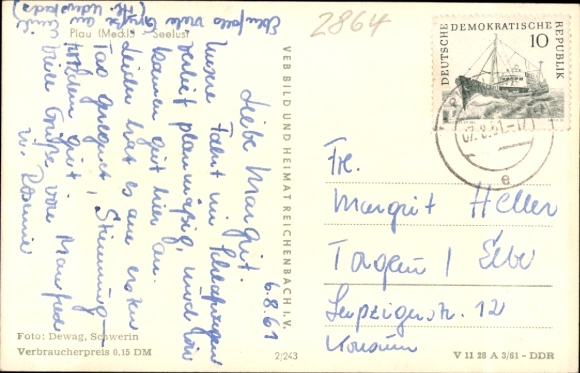 Plau (Meckl.) Seelust
2864
6.8.61
Liebe Margrit.
Unsere Fahrt im
verlief planmäßig, und wir
kamen gut hier an.
Leider hat es am ersten
Tag geregnet, Stimmung
trotzdem gut!
Viele Grüße von Manfred
u.
Ebenfalls viele Grüße an
VEB BILD UND HEIMAT REICHENBACH I. V.
DEUTSCHE DEMOKRATISCHE REPUBLIK
10
Frl.
Margrit Heller
Torgau / Elbe
Leipzigerstr. 12
Konsum
Foto: Dewag, Schwerin
Verbraucherpreis 0,15 DM
2/243
V 11 28 A 3/61 - DDR